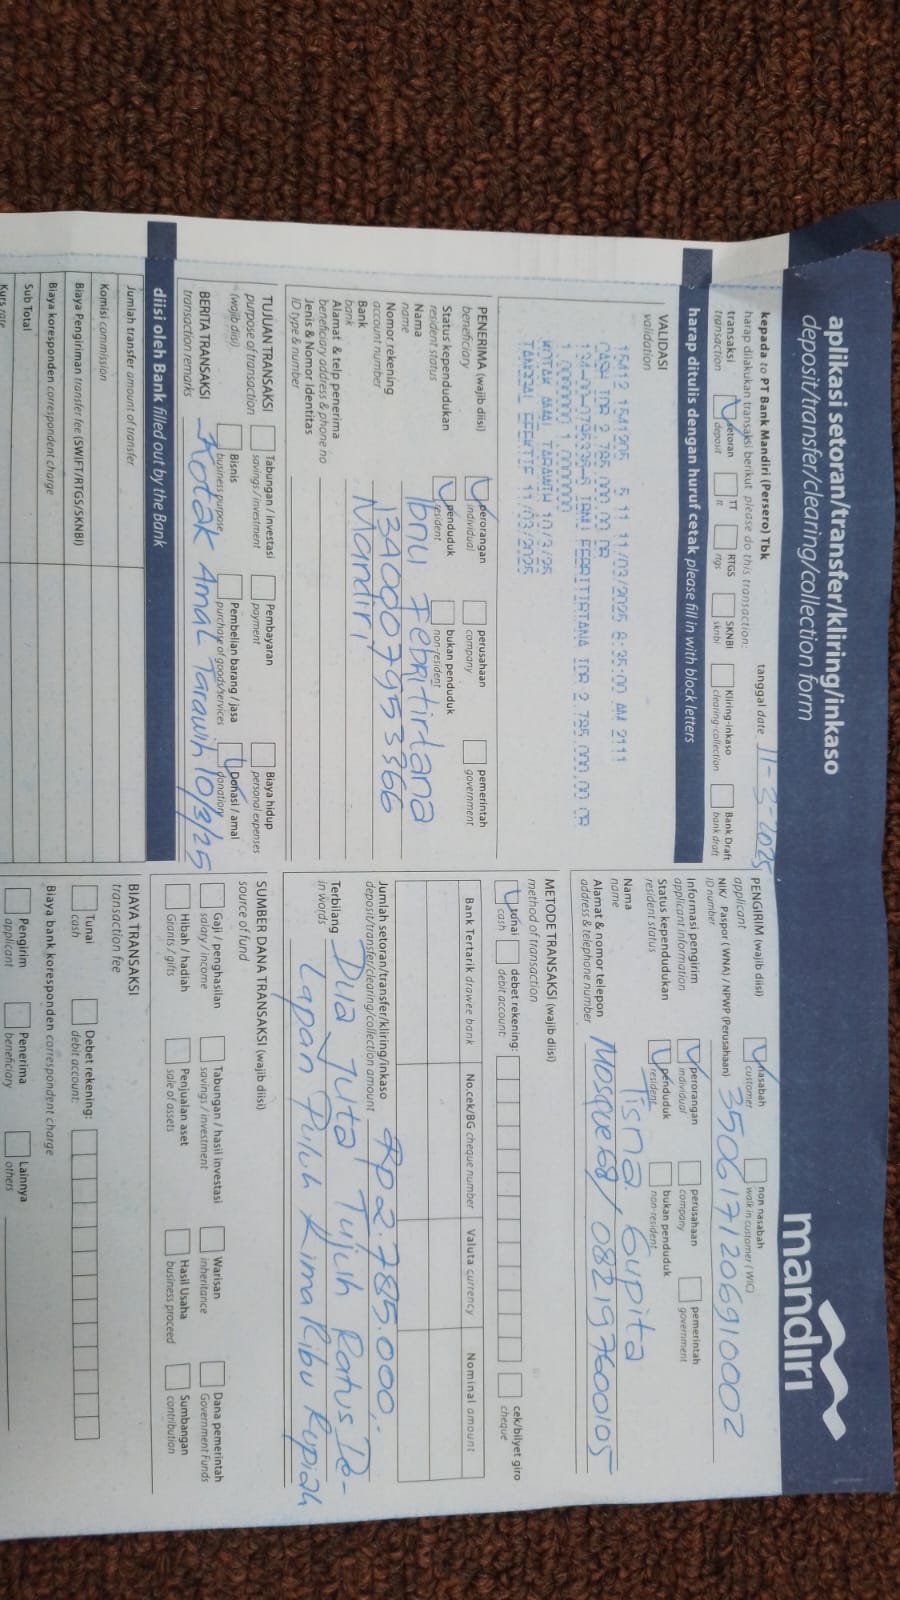 aplikasi setoran/transfer/kliring/inkaso
deposit/transfer/clearing/collection form
mandiri
kepada to PT Bank Mandiri (Persero) Tbk
tanggal date 11-3-2025
harap dilakukan transaksi berikut please do this transaction:
transaksi
transaction
setoran
deposit
TT
tt
RTGS
rtgs
SKNBI
sknbi
Kliring-inkaso
clearing-collection
Bank Draft
bank draft
harap ditulis dengan huruf cetak please fill in with block letters
VALIDASI
validation
15412 1541205 5 11 11/03/2025 8:35:00 AM 2111
CASH IDR 2.785.000,00 DR
134-00-0795336-6 IBNU FEBRITIRTANA IDR 2.785.000,00 CR
1.0000000 1.0000000
KOTAK AMAL TARAWIH 10/3/25
TANGGAL EFEKTIF 11/03/2025
PENERIMA (wajib diisi)
beneficiary
perorangan
individual
perusahaan
company
pemerintah
government
Status kependudukan
resident status
penduduk
resident
bukan penduduk
non-resident
Nama
name
Ibnu Febritirtana
Nomor rekening
account number
1340007953366
Bank
bank
Mandiri
Alamat & telp penerima
beneficiary address & phone no
Jenis & Nomor Identitas
ID type & number
TUJUAN TRANSAKSI
purpose of transaction
(wajib diisi)
Tabungan / investasi
savings / investment
Pembayaran
payment
Biaya hidup
personal expenses
Bisnis
business purpose
Pembelian barang / jasa
purchase of goods/services
Donasi / amal
donation
BERITA TRANSAKSI
transaction remarks
Kotak Amal Tarawih 10/3/25
diisi oleh Bank filled out by the Bank
Jumlah transfer amount of transfer
Komisi commission
Biaya Pengiriman transfer fee (SWIFT/RTGS/SKNBI)
Biaya koresponden correspondent charge
Sub Total
Kurs rate
PENGIRIM (wajib diisi)
applicant
nasabah
customer
non nasabah
walk in customer (WIC)
NIK/ Paspor (WNA) / NPWP (Perusahaan)
ID number
3506171206910002
Informasi pengirim
applicant information
perorangan
individual
perusahaan
company
pemerintah
government
Status kependudukan
resident status
penduduk
resident
bukan penduduk
non-resident
Nama
name
Tisna Gupita
Alamat & nomor telepon
address & telephone number
Mosque 68 / 082197600105
METODE TRANSAKSI (wajib diisi)
method of transaction
tunai
cash
debet rekening:
debit account:
cek/bilyet giro
cheque
Bank Tertarik drawee bank
No.cek/BG cheque number
Valuta currency
Nominal amount
Jumlah setoran/transfer/kliring/inkaso
deposit/transfer/clearing/collection amount
Rp 2.785.000,-
Terbilang
in words
Dua Juta Tujuh Ratus De-
lapan Puluh Lima Ribu Rupiah
SUMBER DANA TRANSAKSI (wajib diisi)
source of fund
Gaji / penghasilan
salary / income
Tabungan / hasil investasi
savings / investment
Warisan
inheritance
Dana pemerintah
Government Funds
Hibah / hadiah
Grants / gifts
Penjualan aset
sale of assets
Hasil Usaha
business proceed
Sumbangan
contribution
BIAYA TRANSAKSI
transaction fee
Tunai
cash
Debet rekening:
debit account:
Biaya bank koresponden correspondent charge
Pengirim
applicant
Penerima
beneficiary
Lainnya
others